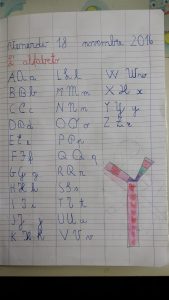 Venerdì 18 novembre 2016
L'alfabeto
A A a
B B b
C C c
D D d
E E e
F F f
G G g
H H h
I I i
J J j
K K k
L L l
M M m
N N n
O O o
P P p
Q Q q
R R r
S S s
T T t
U U u
V V v
W W w
X X x
Y Y y
Z Z z